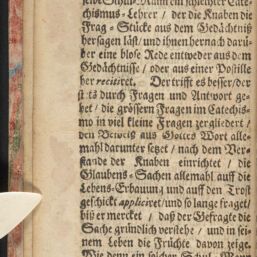 selbe Schul-Mann ein schlechter Cate-
chismus-Lehrer / der die Knaben die
Frag-Stücke aus dem Gedächtniß
hersagen läst/ und ihnen hernach darü-
ber eine blose Rede entweder aus dem
Gedächtnisse / oder aus einer Postille
her recitiret. Der trifft es besser/der
durch Fragen und Antwort ge-
het / die grössern Fragen im Catechis-
mo in viel kleine Fragen zergliedert /
den Beweiß aus Gottes Wort alle-
mahl darunter setzet / nach dem Ver-
stande der Knaben einrichtet / die
Glaubens-Sachen allemahl auff die
Lebens-Erbauung und auff den Trost
geschickt appliciret/und so lange fraget/
biß er mercket / daß der Gefragte die
Sache gründlich verstehe / und in sei-
nem Leben die Früchte davon zeige.
Wie denn ein solcher Schul-Mann